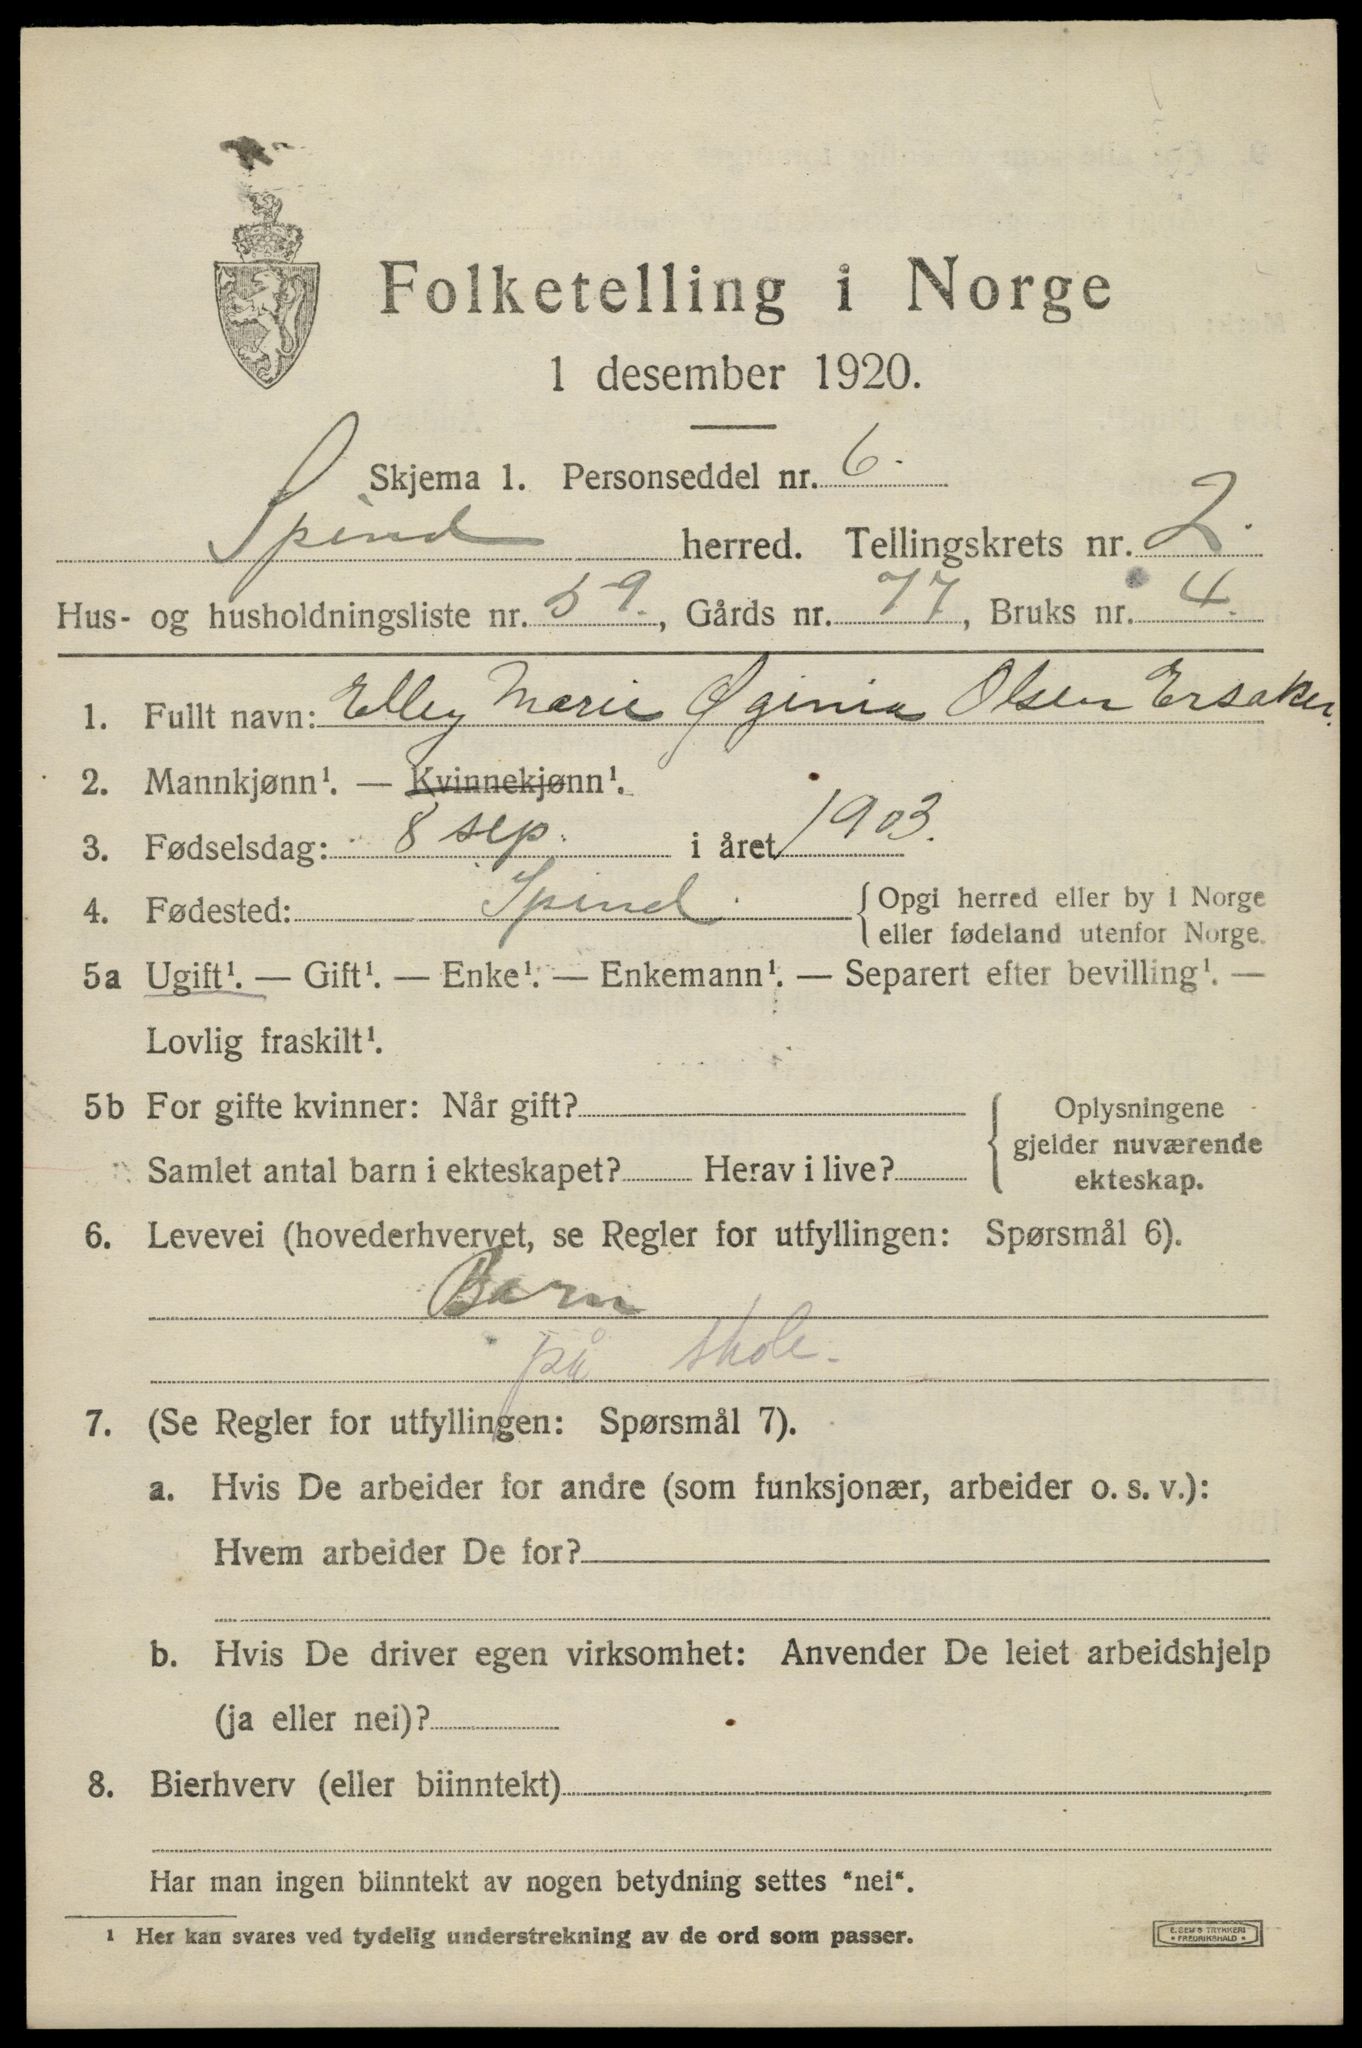 Folketelling i Norge
1 desember 1920.
Skjema 1. Personseddel nr. 6.
Spind herred. Tellingskrets nr. 2.
Hus- og husholdningsliste nr. 59., Gårds nr. 77, Bruks nr. 4.
1. Fullt navn: Elley Marie Øginia Olsen Ersaker.
2. Mannkjønn¹. — Kvinnekjønn¹.
3. Fødselsdag: 8 sep. i året 1903.
4. Fødested: Spind. {Opgi herred eller by i Norge
eller fødeland utenfor Norge.
5a Ugift¹. — Gift¹. — Enke¹. — Enkemann¹. — Separert efter bevilling¹. —
Lovlig fraskilt¹.
5b For gifte kvinner: Når gift? { Oplysningene
gjelder nuværende
Samlet antal barn i ekteskapet? Herav i live? ekteskap.
6. Levevei (hovederhvervet, se Regler for utfyllingen: Spørsmål 6).
Barn
på skole.
7. (Se Regler for utfyllingen: Spørsmål 7).
a. Hvis De arbeider for andre (som funksjonær, arbeider o. s. v.):
Hvem arbeider De for?
b. Hvis De driver egen virksomhet: Anvender De leiet arbeidshjelp
(ja eller nei)?
8. Bierhverv (eller biinntekt)
Har man ingen biinntekt av nogen betydning settes "nei".
¹ Her kan svares ved tydelig understrekning av de ord som passer.
E. SEM'S TRYKKERI
* FREDRIKSHALD *